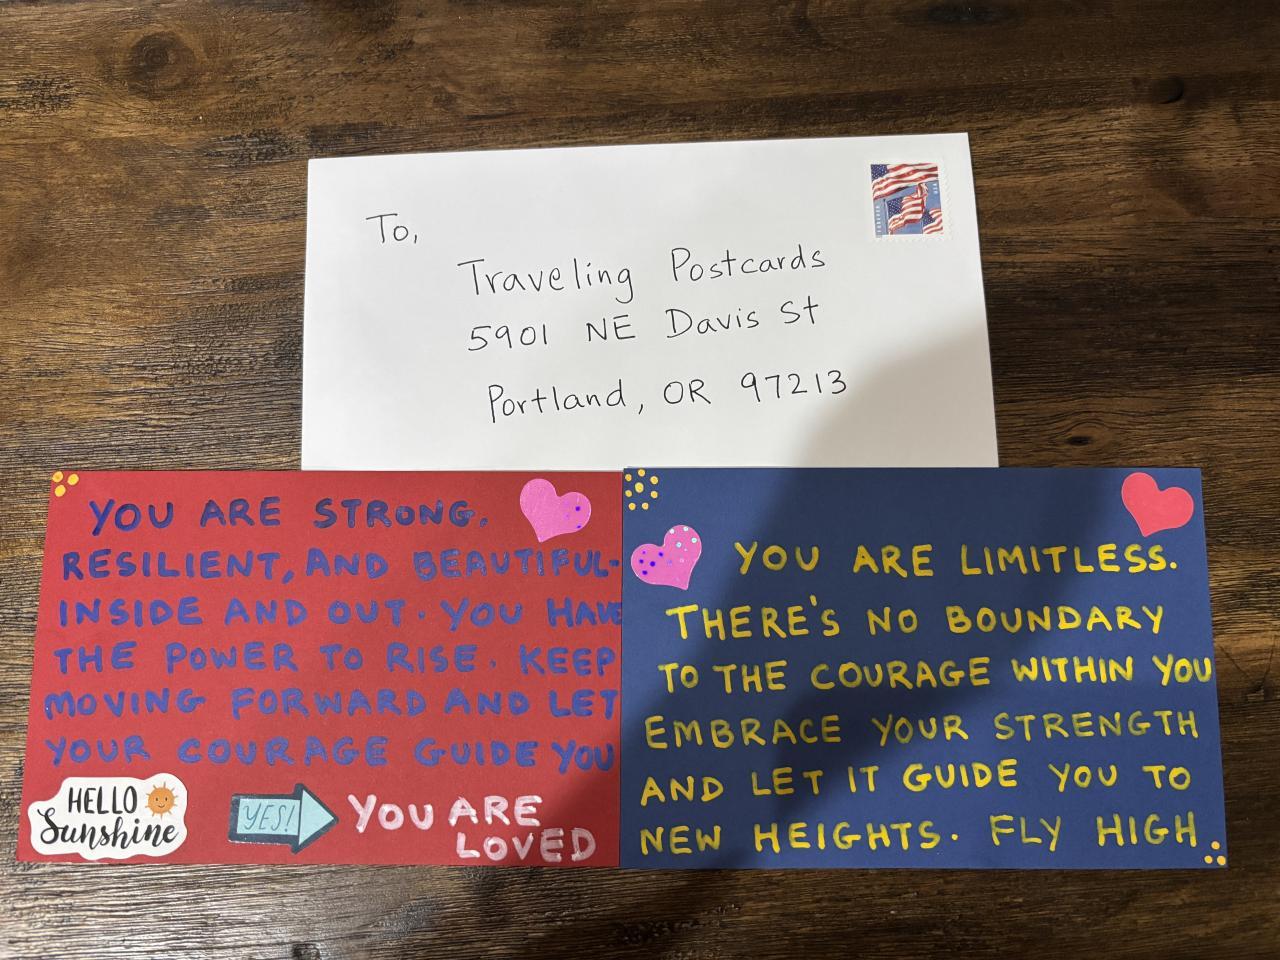 To,
Traveling Postcards
5901 NE Davis St
Portland, OR 97213
YOU ARE STRONG.
RESILIENT, AND BEAUTIFUL-
INSIDE AND OUT. YOU HAVE
THE POWER TO RISE. KEEP
MOVING FORWARD AND LET
YOUR COURAGE GUIDE YOU
HELLO
Sunshine
YES!
YOU ARE
LOVED
YOU ARE LIMITLESS.
THERE'S NO BOUNDARY
TO THE COURAGE WITHIN YOU
EMBRACE YOUR STRENGTH
AND LET IT GUIDE YOU TO
NEW HEIGHTS. FLY HIGH